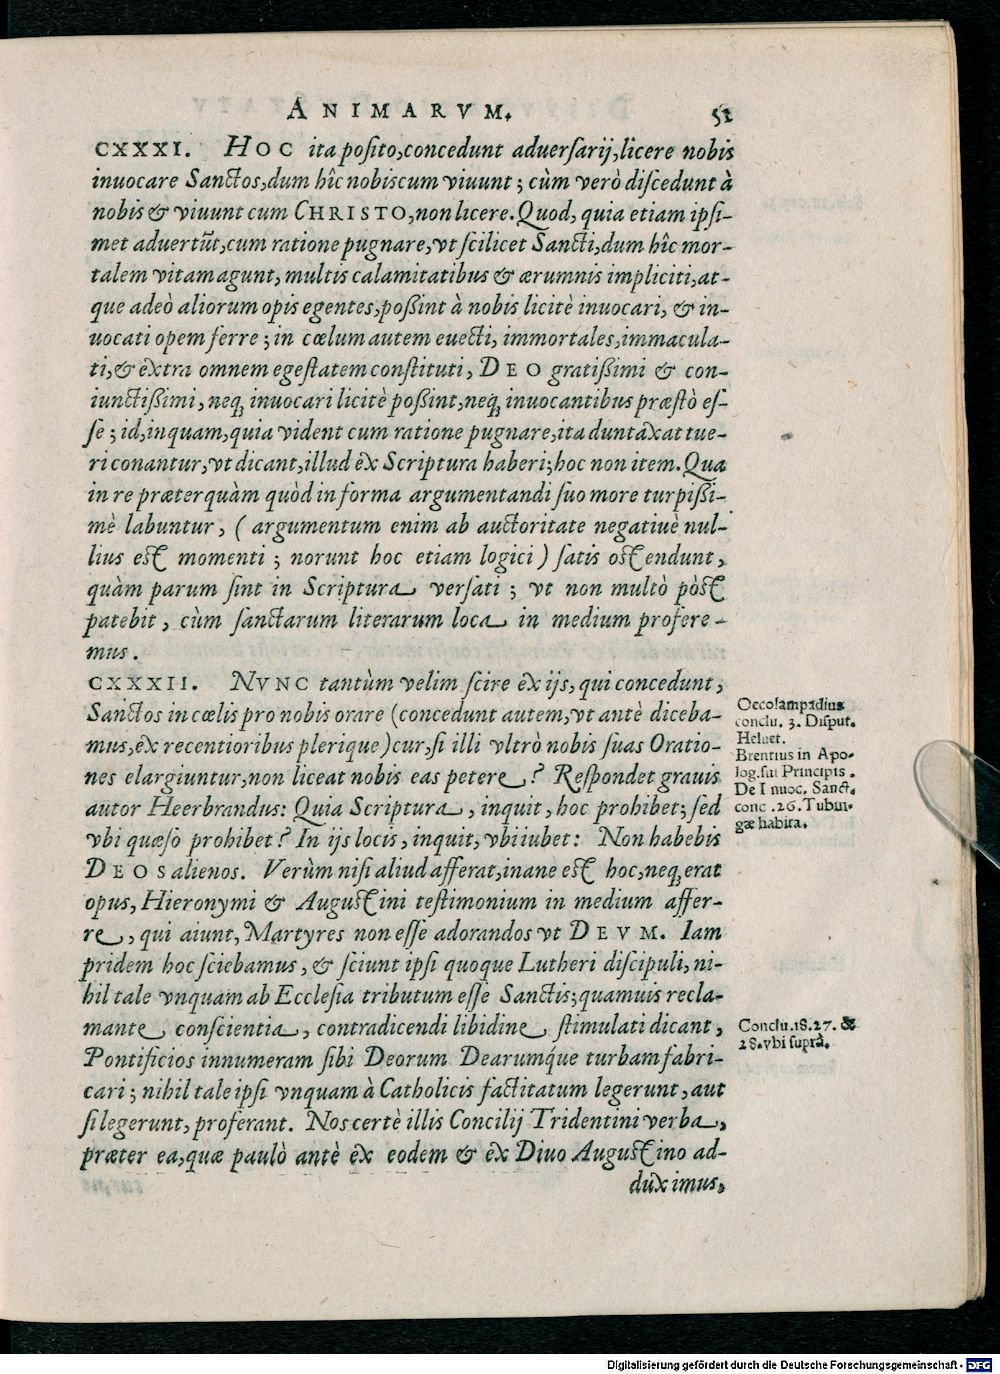 ANIMARVM. 52
CXXXI. HOC ita posito, concedunt aduersarij, licere nobis
inuocare Sanctos, dum hîc nobiscum viuunt; cùm verò discedunt à
nobis & viuunt cum CHRISTO, non licere. Quod, quia etiam ipsi-
met aduertũt, cum ratione pugnare, vt scilicet Sancti, dum hîc mor-
talem vitam agunt, multis calamitatibus & ærumnis impliciti, at-
que adeò aliorum opis egentes, poßint à nobis licitè inuocari, & in-
uocati opem ferre; in cœlum autem euecti, immortales, immacula-
ti, & extra omnem egestatem constituti, DEO gratißimi & con-
iunctißimi, neq₃ inuocari licitè poßint, neq₃ inuocantibus præstò es-
se; id, inquam, quia vident cum ratione pugnare, ita duntaxat tue-
ri conantur, vt dicant, illud ex Scriptura haberi; hoc non item. Qua
in re præterquàm quòd in forma argumentandi suo more turpißi-
mè labuntur, (argumentum enim ab auctoritate negatiuè nul-
lius est momenti; norunt hoc etiam logici) satis ostendunt,
quàm parum sint in Scriptura versati; vt non multò pòst
patebit, cùm sanctarum literarum loca in medium profere-
mus.
CXXXII. NVNC tantùm velim scire ex ijs, qui concedunt,
Sanctos in cœlis pro nobis orare (concedunt autem, vt antè diceba-
mus, ex recentioribus plerique) cur, si illi vltrò nobis suas Oratio-
nes elargiuntur, non liceat nobis eas petere? Respondet grauis
autor Heerbrandus: Quia Scriptura, inquit, hoc prohibet; sed
vbi quæso prohibet? In ijs locis, inquit, vbi iubet: Non habebis
DEOS alienos. Verùm nisi aliud afferat, inane est hoc, neq₃ erat
opus, Hieronymi & Augustini testimonium in medium affer-
re, qui aiunt, Martyres non esse adorandos vt DEVM. Iam
pridem hoc sciebamus, & sciunt ipsi quoque Lutheri discipuli, ni-
hil tale vnquam ab Ecclesia tributum esse Sanctis; quamuis recla-
mante conscientia, contradicendi libidine stimulati dicant,
Pontificios innumeram sibi Deorum Dearumq́ue turbam fabri-
cari; nihil tale ipsi vnquam à Catholicis factitatum legerunt, aut
si legerunt, proferant. Nos certè illis Concilij Tridentini verba,
præter ea, quæ paulò antè ex eodem & ex Diuo Augustino ad-
duximus,
Oecolampadius
conclu. 3. Disput.
Heluet.
Brentius in Apo-
log. sui Principis.
De Inuoc. Sanct.
conc. 26. Tubin-
gæ habita.
Conclu. 18. 27. &
28. vbi suprà.
Digitalisierung gefördert durch die Deutsche Forschungsgemeinschaft - DFG